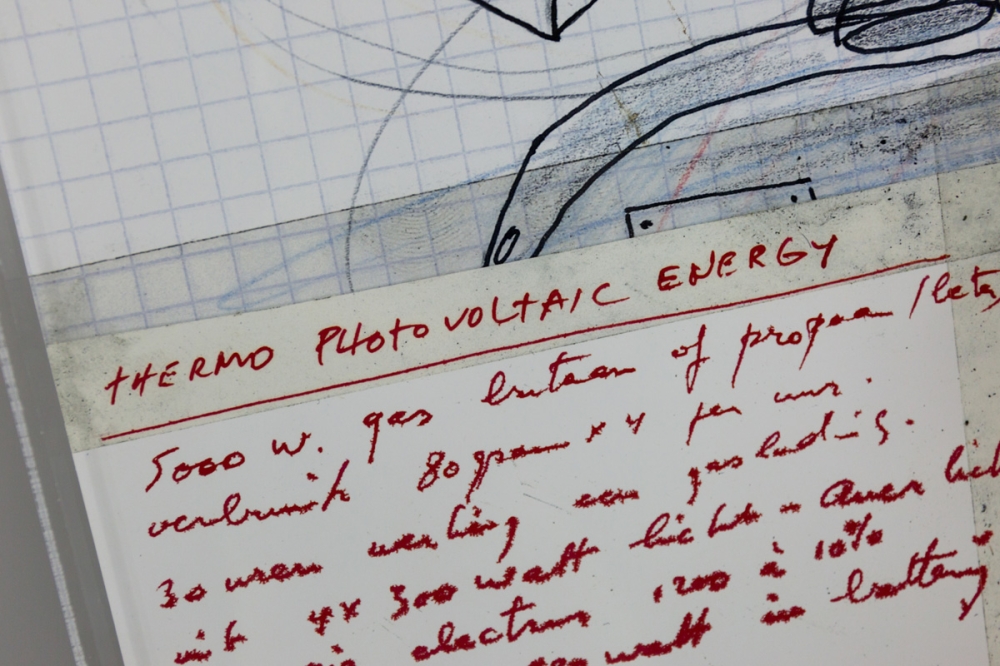 tHERMO PHOtOVOLtAIC ENERGY
5000 w. gas butaan of propaan /
verbruik 80 gram x 4 per uur.
30 uren werking een gaslading.
uit 4x 300 watt licht - Auer
electrum 1200 à 10%
watt in